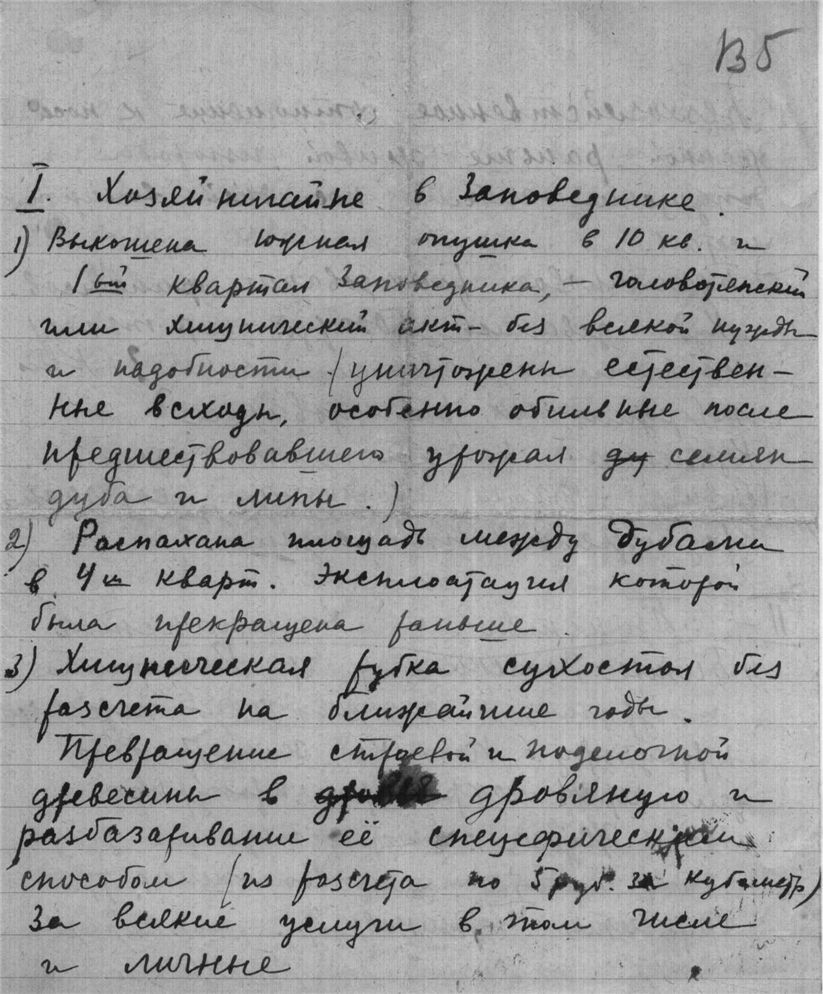 В5
I. Хозяйничание в Заповеднике.
1) Выкошена южная опушка в 10 кв. и
1ый квартал Заповедника, — головотяпский
или хищнический акт - без всякой нужды
и надобности (уничтожены естествен-
ные всходы, особенно обильные после
предшествовавшего урожая ду семян
дуба и липы.)
2) Распахана площадь между дубами
в 4м кварт. Эксплоатация которой
была прекращена раньше
3) Хищническая рубка сухостоя без
расчета на ближайшие годы.
Превращение строевой и поделочной
древесины в дровяную и
разбазаривание её специфическим
способом (из расчета по 5 руб. за кубометр)
за всякие услуги в том числе
и личные